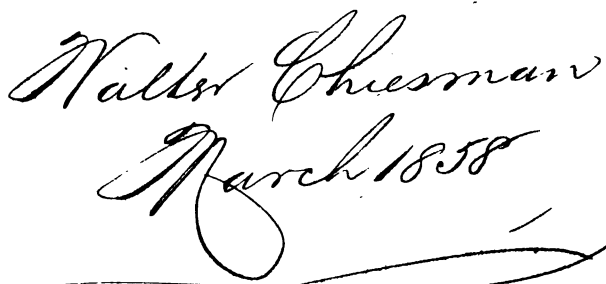 Walter Chiesman
March 1858